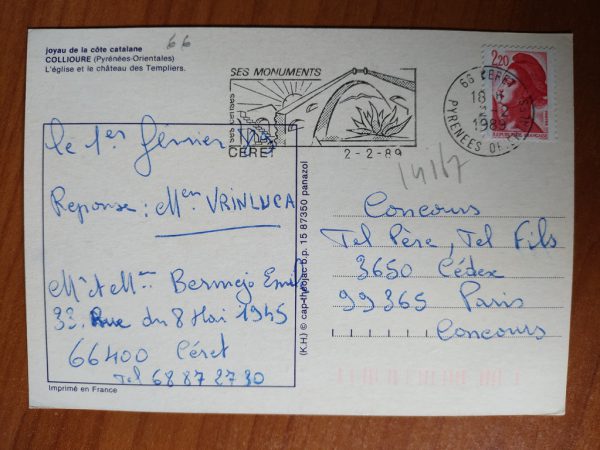 joyau de la côte catalane
COLLIOURE (Pyrénées-Orientales)
L'église et le château des Templiers.
66
SES MONUMENTS
SES CERISES
CERET
2-2-89
2,20
66 CERET
18 H
2-2
1989
PYRENEES ORIENTALES
REPUBLIQUE FRANCAISE
le 1er février
Reponse: Men VRINLUCA
Mr et Mme Bermejo Emile
33. Rue du 8 Mai 1945
66400 Céret
Tel 68 87 27 30
Imprimé en France
(K.H.) © cap-théojac b.p. 15 87350 panazol
14167
Concours
Tel Père, Tel Fils
3650 Cédex
99365 Paris
Concours